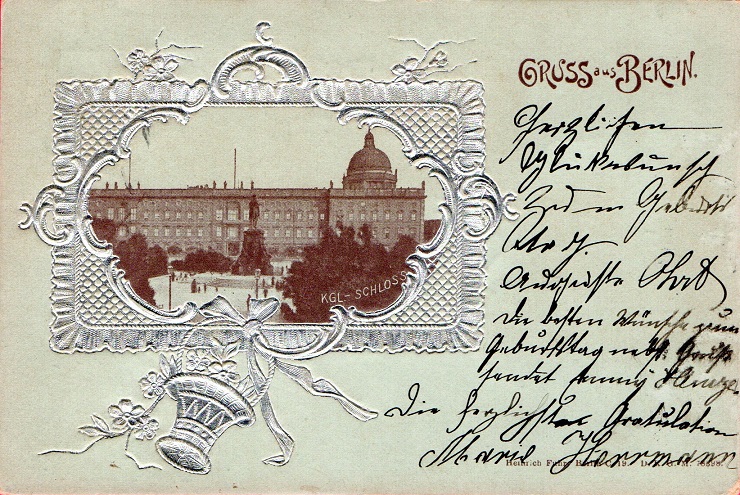 GRUSS aus BERLIN.
KGL-SCHLOSS
Herzlichen
Glückwunsch
Zum Geburts
tag.
Auguste
Die besten Wünsche zum
Geburtstag nebst Grüße
sendet Fanny
Die herzlichsten Gratulation
Marie Herrmann
Heinrich Fuhr, Berlin C. 19. D. R. G. M.